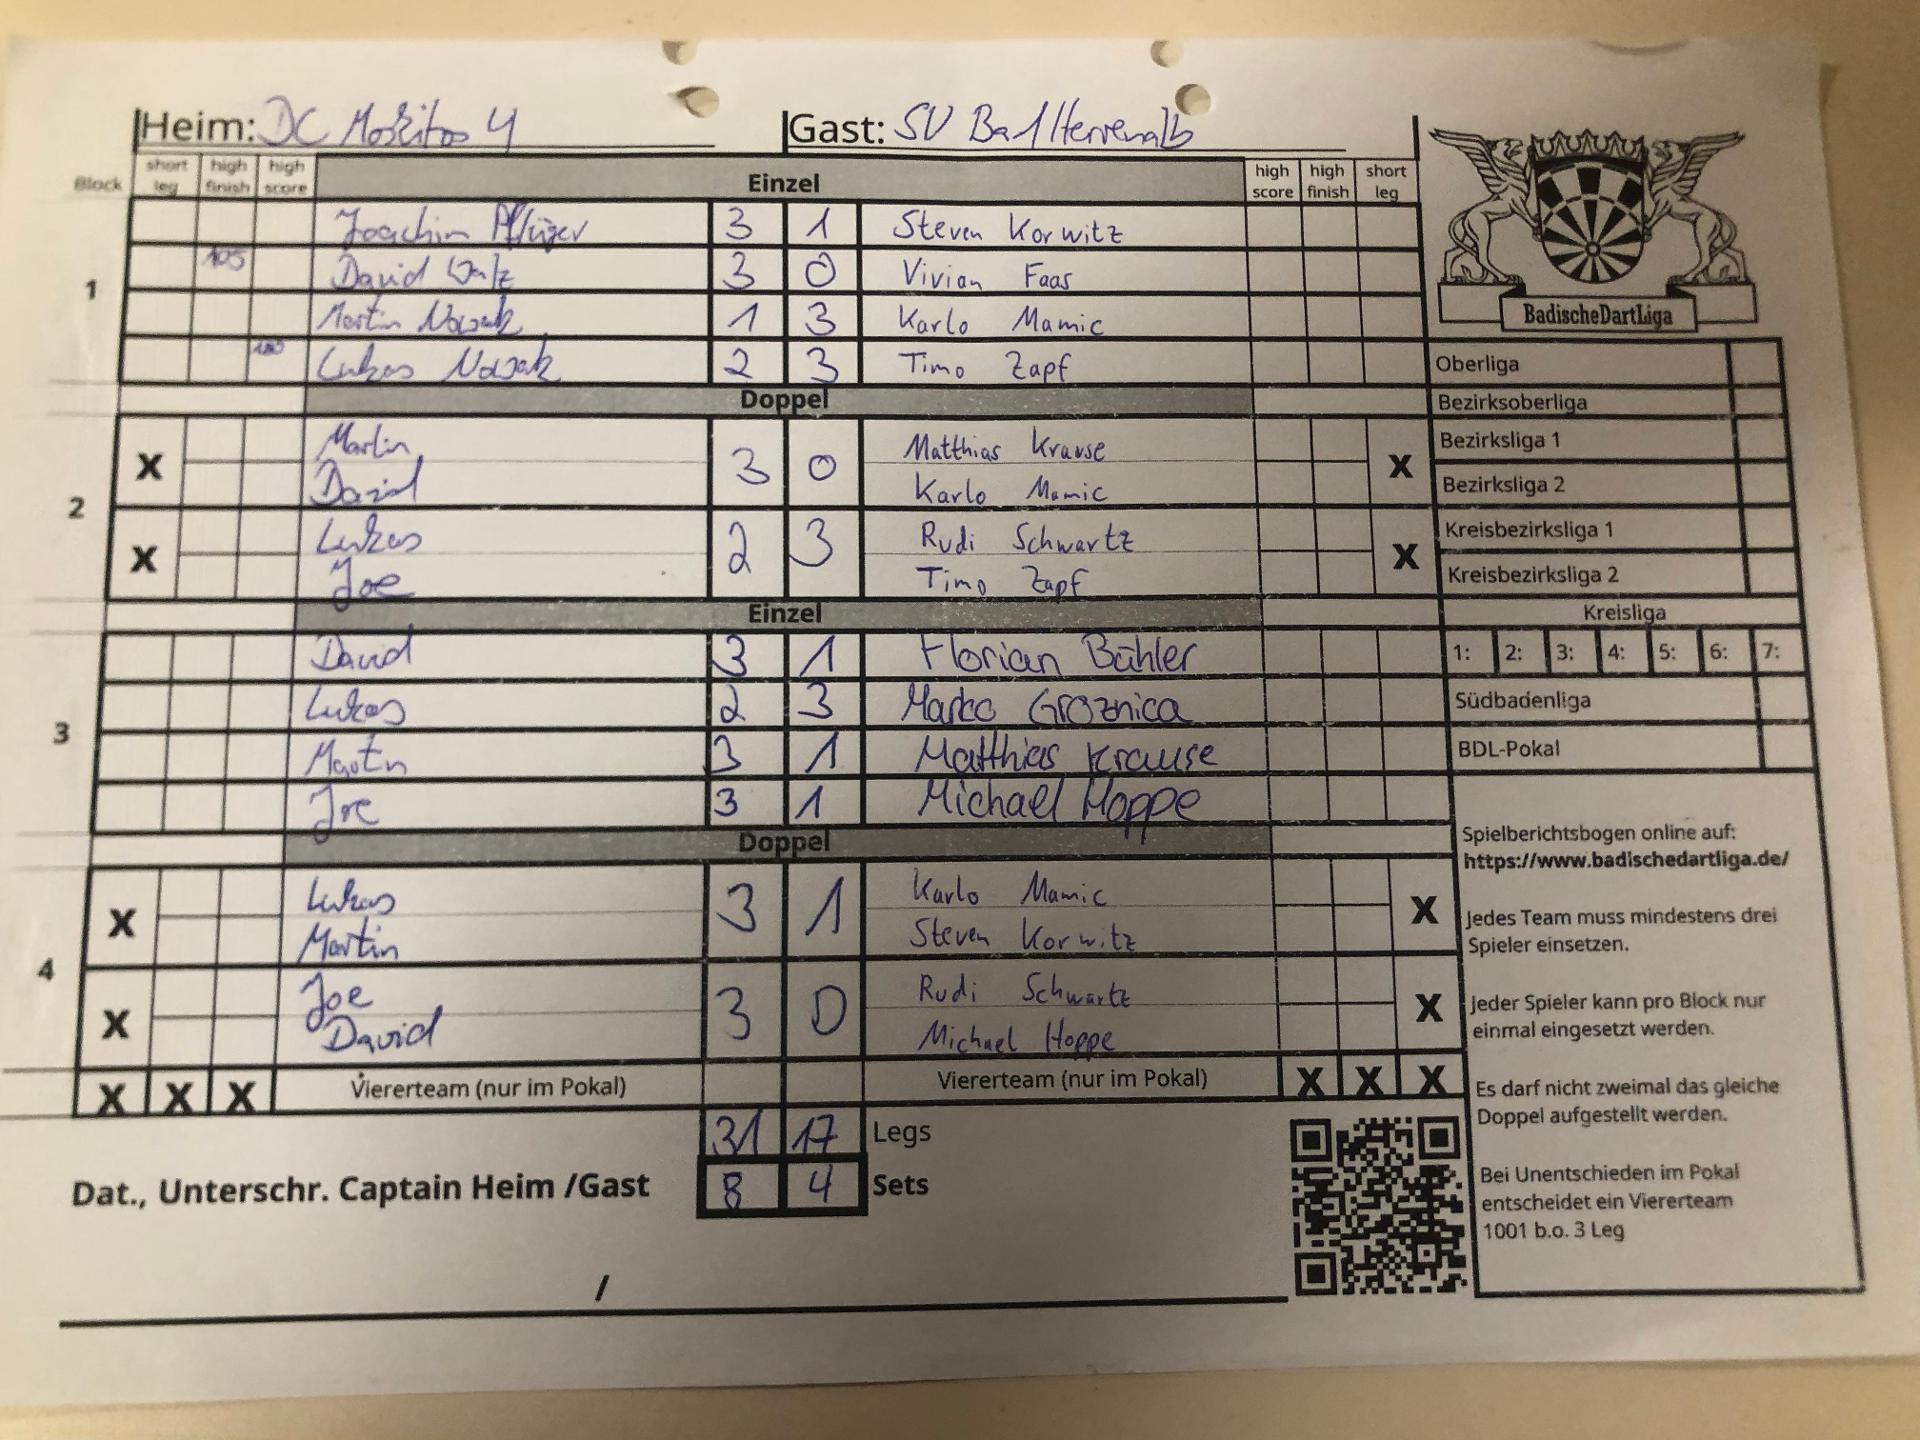 Heim: DC Moskitos 4 Gast: SV Bad Herrenalb
Block short leg high finish high score Einzel high score high finish short leg
1
Joachim Pflüger 3 1 Steven Korwitz
105 David Walz 3 0 Vivian Faas
Martin Nowak 1 3 Karlo Mamic
180 Lukas Nowak 2 3 Timo Zapf
Doppel
2
X Martin 3 0 Matthias Krause X
David Karlo Mamic
X Lukas 2 3 Rudi Schwartz X
Joe Timo Zapf
Einzel
3
David 3 1 Florian Bühler
Lukas 2 3 Marko Groznica
Martin 3 1 Matthias Krause
Joe 3 1 Michael Hoppe
Doppel
4
X Lukas 3 1 Karlo Mamic X
Martin Steven Korwitz
X Joe 3 0 Rudi Schwartz X
David Michael Hoppe
X X X Viererteam (nur im Pokal) Viererteam (nur im Pokal) X X X
31 17 Legs
Dat., Unterschr. Captain Heim /Gast 8 4 Sets
/
BadischeDartLiga
Oberliga
Bezirksoberliga
Bezirksliga 1
Bezirksliga 2
Kreisbezirksliga 1
Kreisbezirksliga 2
Kreisliga
1: 2: 3: 4: 5: 6: 7:
Südbadenliga
BDL-Pokal
Spielberichtsbogen online auf:
https://www.badischedartliga.de/
Jedes Team muss mindestens drei
Spieler einsetzen.
Jeder Spieler kann pro Block nur
einmal eingesetzt werden.
Es darf nicht zweimal das gleiche
Doppel aufgestellt werden.
Bei Unentschieden im Pokal
entscheidet ein Viererteam
1001 b.o. 3 Leg